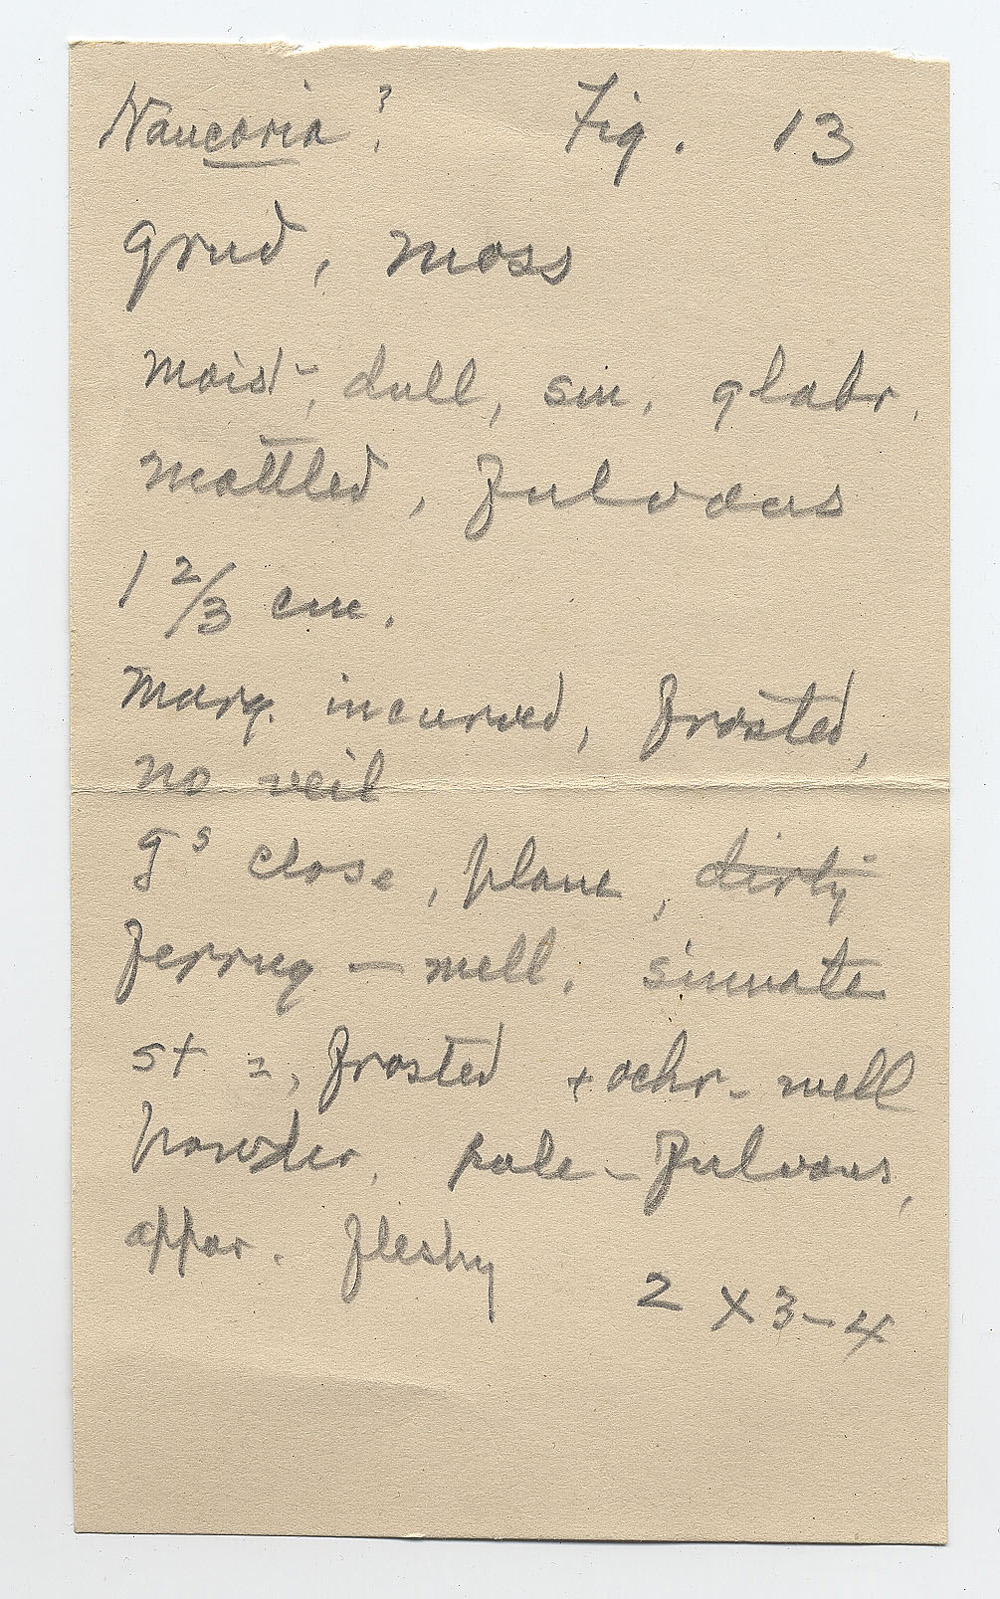 Naucoria ? Fig. 13
grnd, moss
moist, dull, sm, glabr.
mottled, fulvous
1 2/3 cm.
marg. incurved, frosted,
no veil
gs close, plane, dirty
ferrug - mell. sinuate
st =, frosted + ochr - mell
powder, pale - fulvous,
appar. fleshy
2 x 3-4